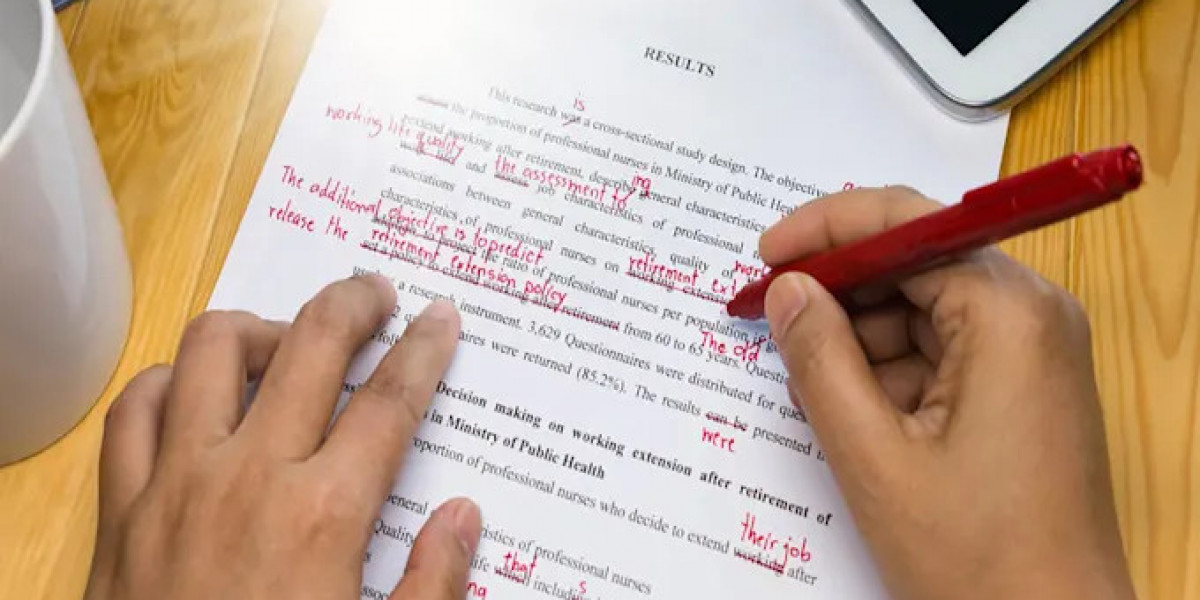 RESULTS
is
This research was a cross-sectional study design. The objectives
the proportion of professional nurses in Ministry of Public Health
working life quality
extend working after retirement, describe general characteristics
ing
the assessment to
work life and assess job characteristics of professional
associations between general characteristics, quality of work
The additional objective is to predict
characteristics of professional nurses on working extension
retirement ext
release the retirement extension policy
the ratio of professional nurses per population
set a policy to extend working after retirement from 60 to 65 years.
The old
a research instrument. 3,629 Questionnaires were distributed for
were returned (85.2%). The results can be presented
were
Decision making on working extension after retirement of
in Ministry of Public Health
proportion of professional nurses who decide to extend working after
their job
of professional nurses
Quality
life which including
that
s
ng